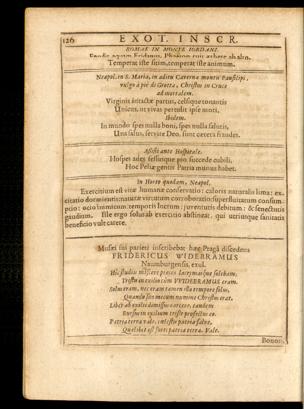 126
EXOT. INSCR.
ROMAE IN MONTE IORDANI.
ab alto,
Temperat iste sitim, temperat iste animum.
Neapol. in S. Maria, in aditu Cavernæ montis Pausilipi,
vulgo à piè di Grotta, Christus in Cruce
ad mortalem.
Virginis intactæ partus, celsique tonantis
Unicus, ut vivas pertulit ipse mori.
Ibidem.
In mundo spes nulla boni, spes nulla salutis,
Una salus, servire Deo, sunt cætera fraudes.
Assisii ante Hospitale.
Hospes adest, fessusque pio succede cubili,
Hoc Peligrgentis Patria munus habet.
In Horto quodam, Neapol.
Exercitium est vitæ humanæ conservatio: caloris naturalis lima: ex-
citatio dormientis naturæ virtutum corroboratio: superfluitatum consum-
ptio: ocio inimicum temporis lucrum: juventutis debitum: & senectutis
gaudium. Ille ergo solus ab exercitio abstineat, qui utriusque sanitatis
beneficio vult carere.
Musei sui parieti inscribebat hæc Pragâ discedens
FRIDERICUS WIDEBRAMUS
Naumburgensis, exul.
Hîc studiis miscere preces lacrymasque solebam,
Tristis in exilio cùm VVIDEBRAMUS eram.
Solus eram, nec eram tamen isto tempore solus,
Quandò solus mecum numine Christus erat.
Liber ab exilii damnatus carcere, tandem
Rursus in exilium tristè profectus eo.
Patria terra vale, cœlestis patria salve,
Quælibet est justis patria terra. Vale.
Bonon.